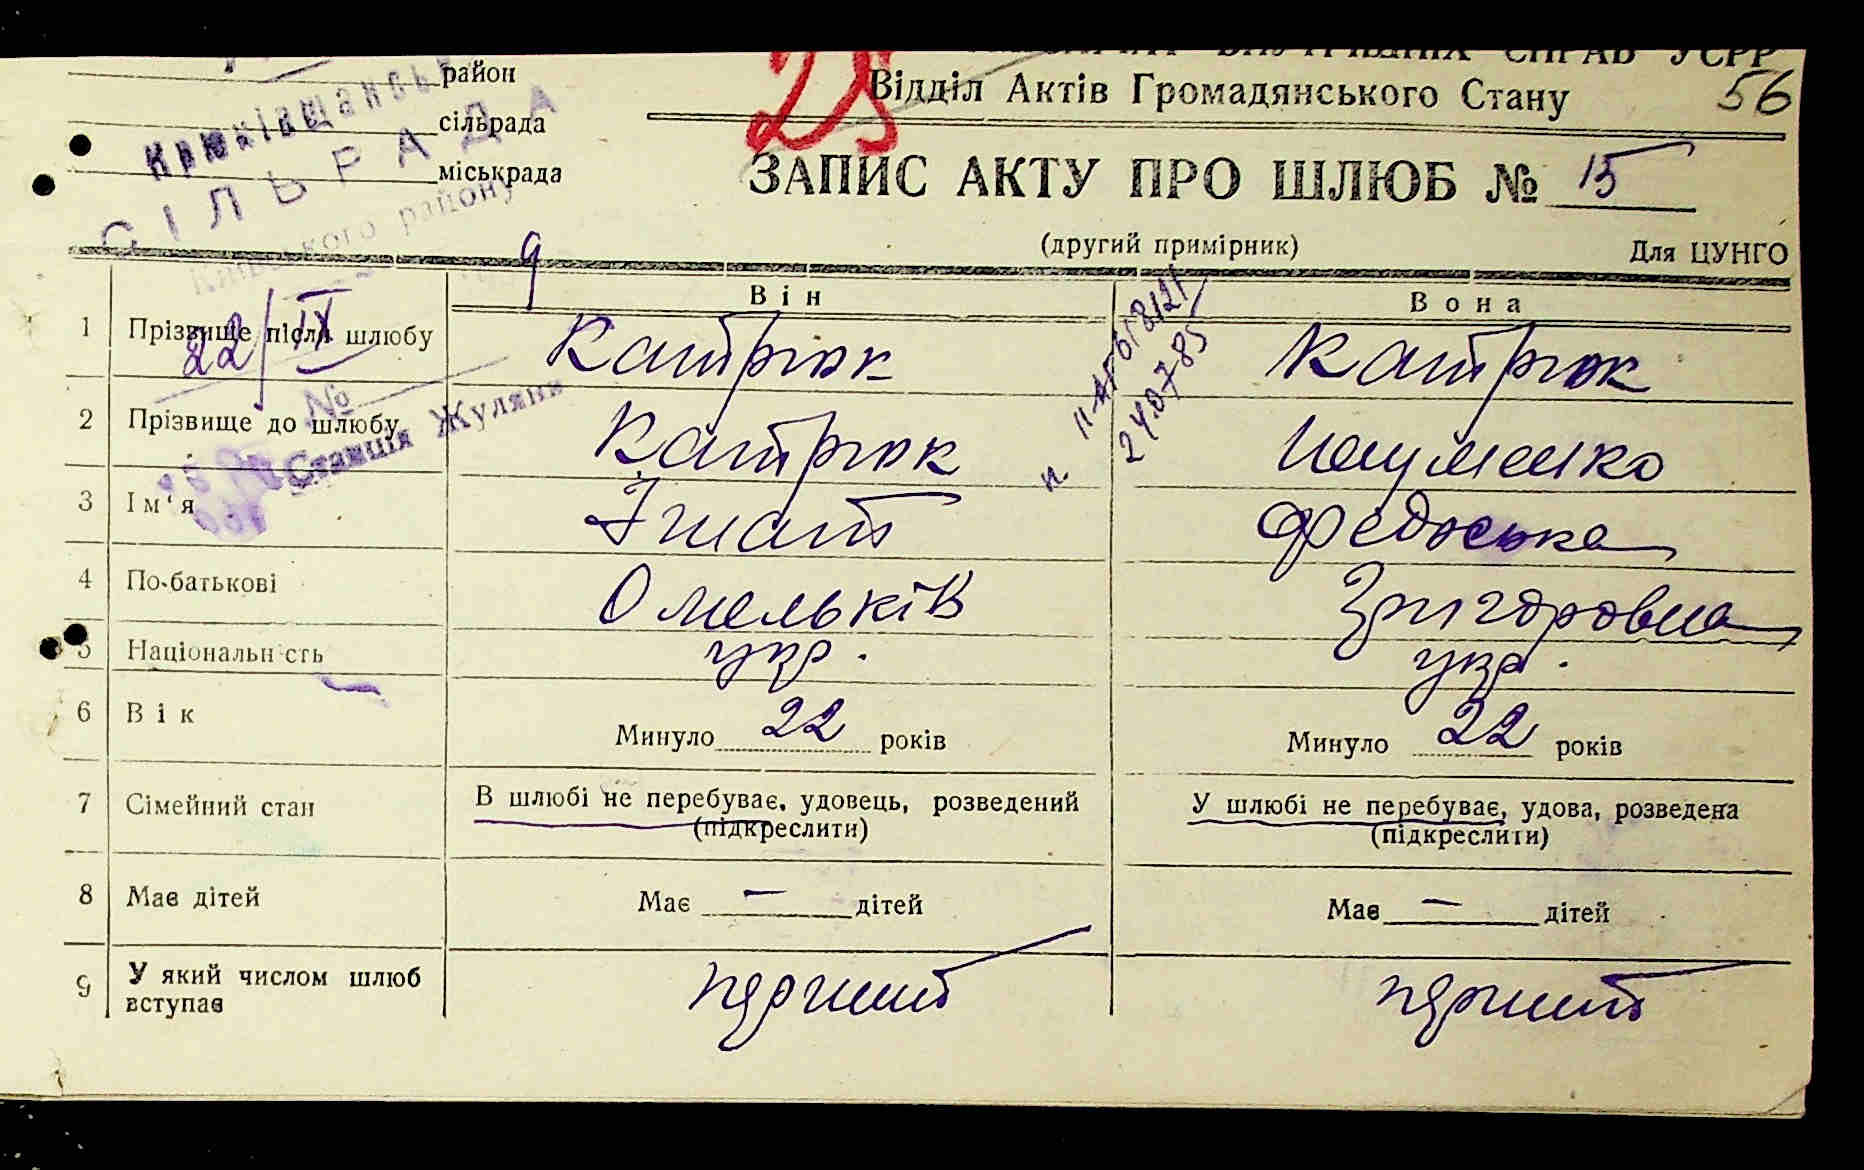 район
сільрада
міськрада
Крюківщанська
СІЛЬРАДА
Київського району
22/IX
№
Станція Жуляни
28
ВНУТРІШНІХ СПРАВ УСРР
Відділ Актів Громадянського Стану
56
ЗАПИС АКТУ ПРО ШЛЮБ № 15
(другий примірник)
Для ЦУНГО
9
Він
Вона
1 Прізвище після шлюбу Катрюк Катрюк
24.07.85
2 Прізвище до шлюбу Катрюк
3 Ім'я Ігнат Федоська
4 По-батькові Омельків Григоровна
5 Національність укр. укр.
6 Вік Минуло 22 років Минуло 22 років
7 Сімейний стан В шлюбі не перебуває, удовець, розведений У шлюбі не перебуває, удова, розведена
(підкреслити) (підкреслити)
8 Має дітей Має — дітей Має — дітей
9 У який числом шлюб
вступає